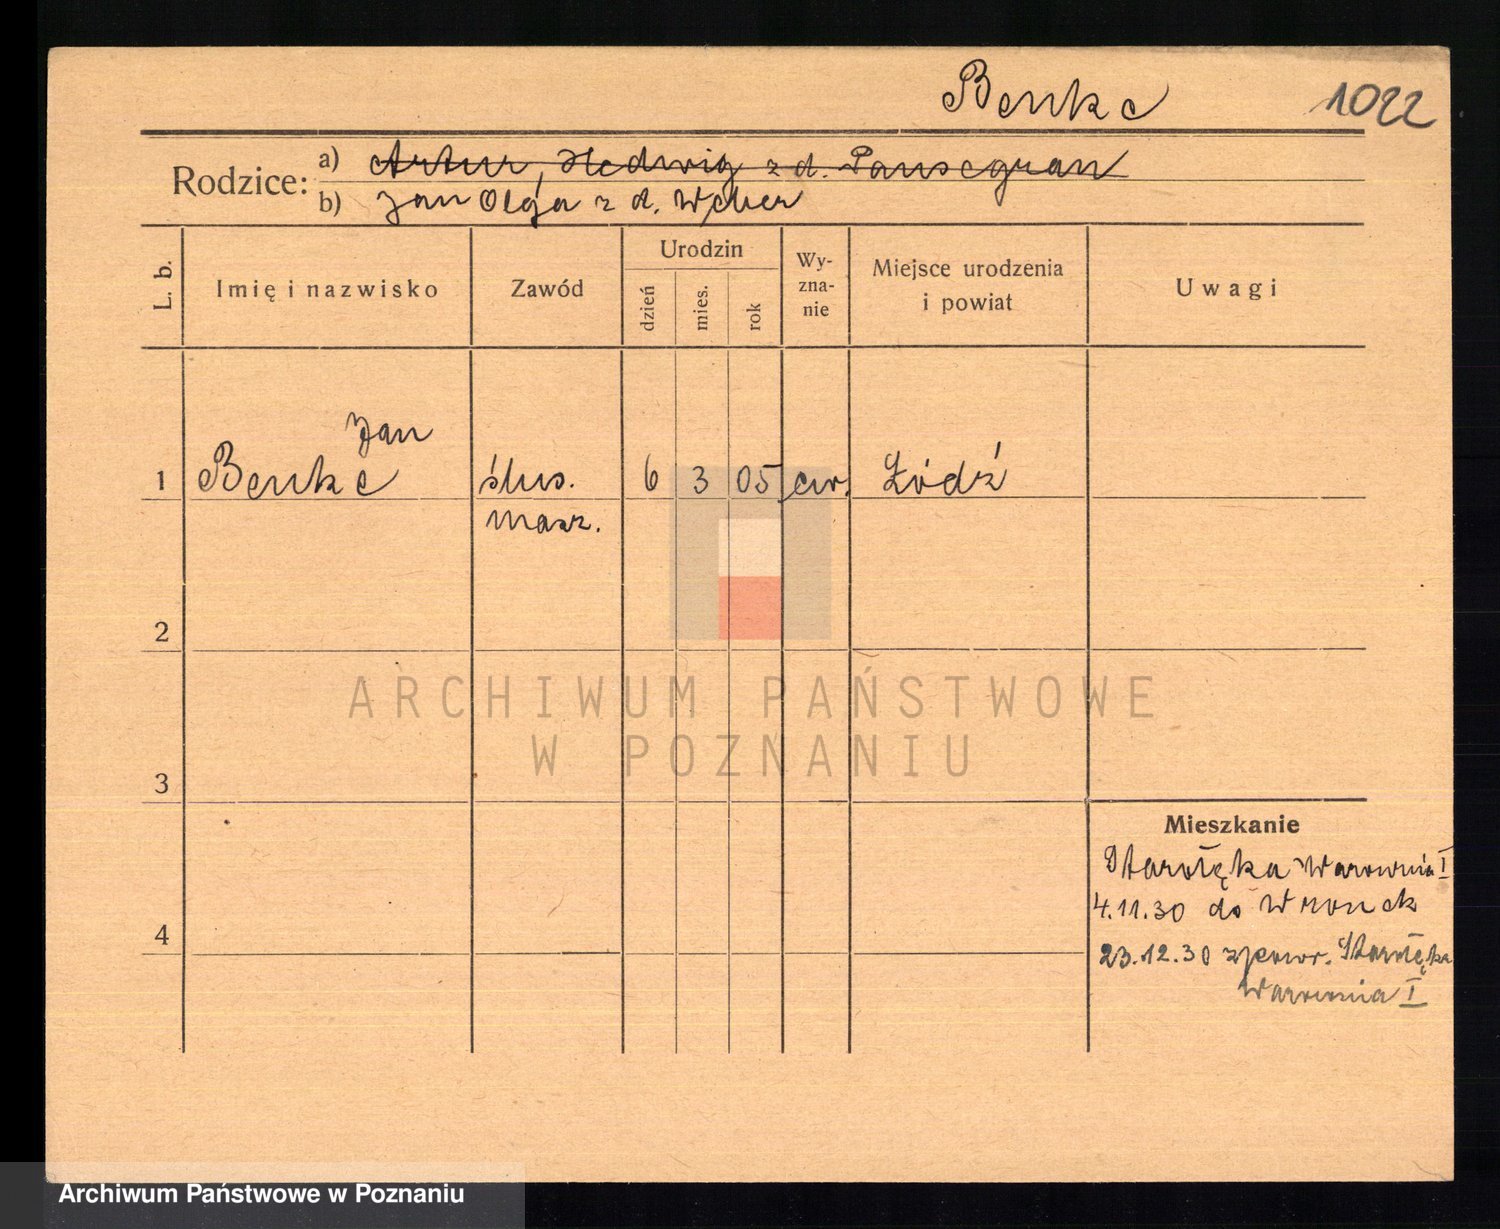 Benke 1022
Rodzice:
a) Artur, Hedwig z d. Pansegrau
b) Jan Olga z d. Weber
L. b.
Imię i nazwisko
Zawód
Urodzin
dzień
mies.
rok
Wy-
zna-
nie
Miejsce urodzenia
i powiat
Uwagi
Jan
1 Benke ślus. 6 3 05 ew. Łódź
masz.
2
3
4
Mieszkanie
Starołęka Warownia I
4.11.30 do Wronek
23.12.30 zpowr. Starołęka
Warownia I
ARCHIWUM PAŃSTWOWE
W POZNANIU
Archiwum Państwowe w Poznaniu